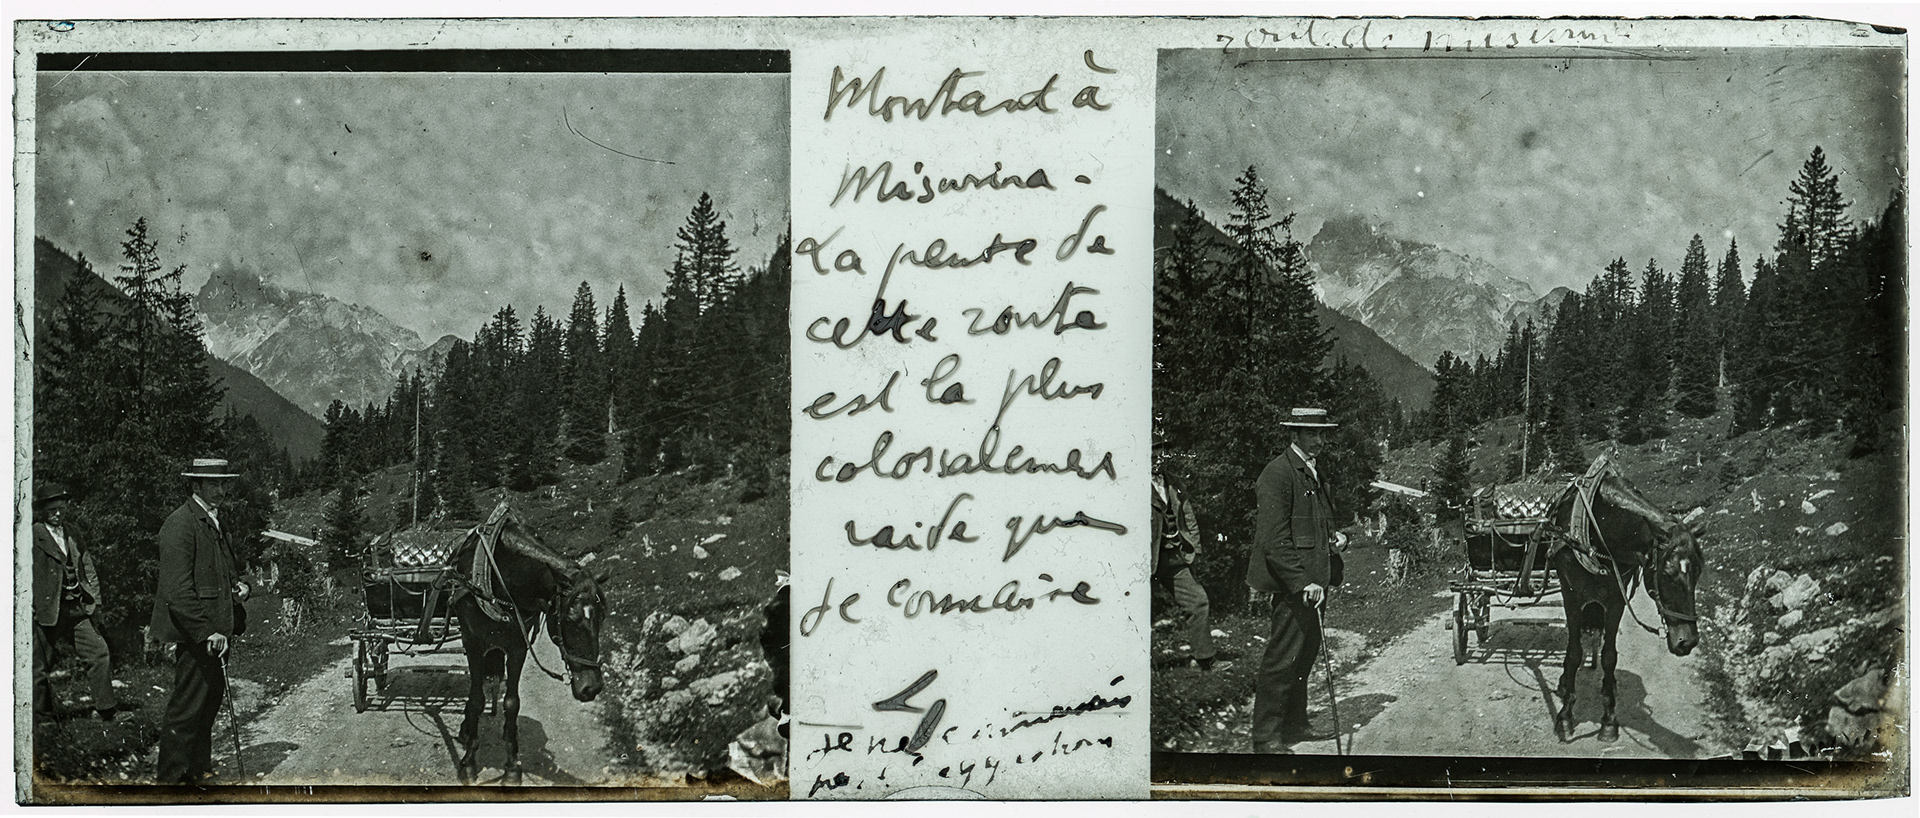 route de misurin
Montant à
Misurina -
La pente de
cette route
est la plus
colossalement
raide que
je connaisse.
je ne connaissais
pas l'